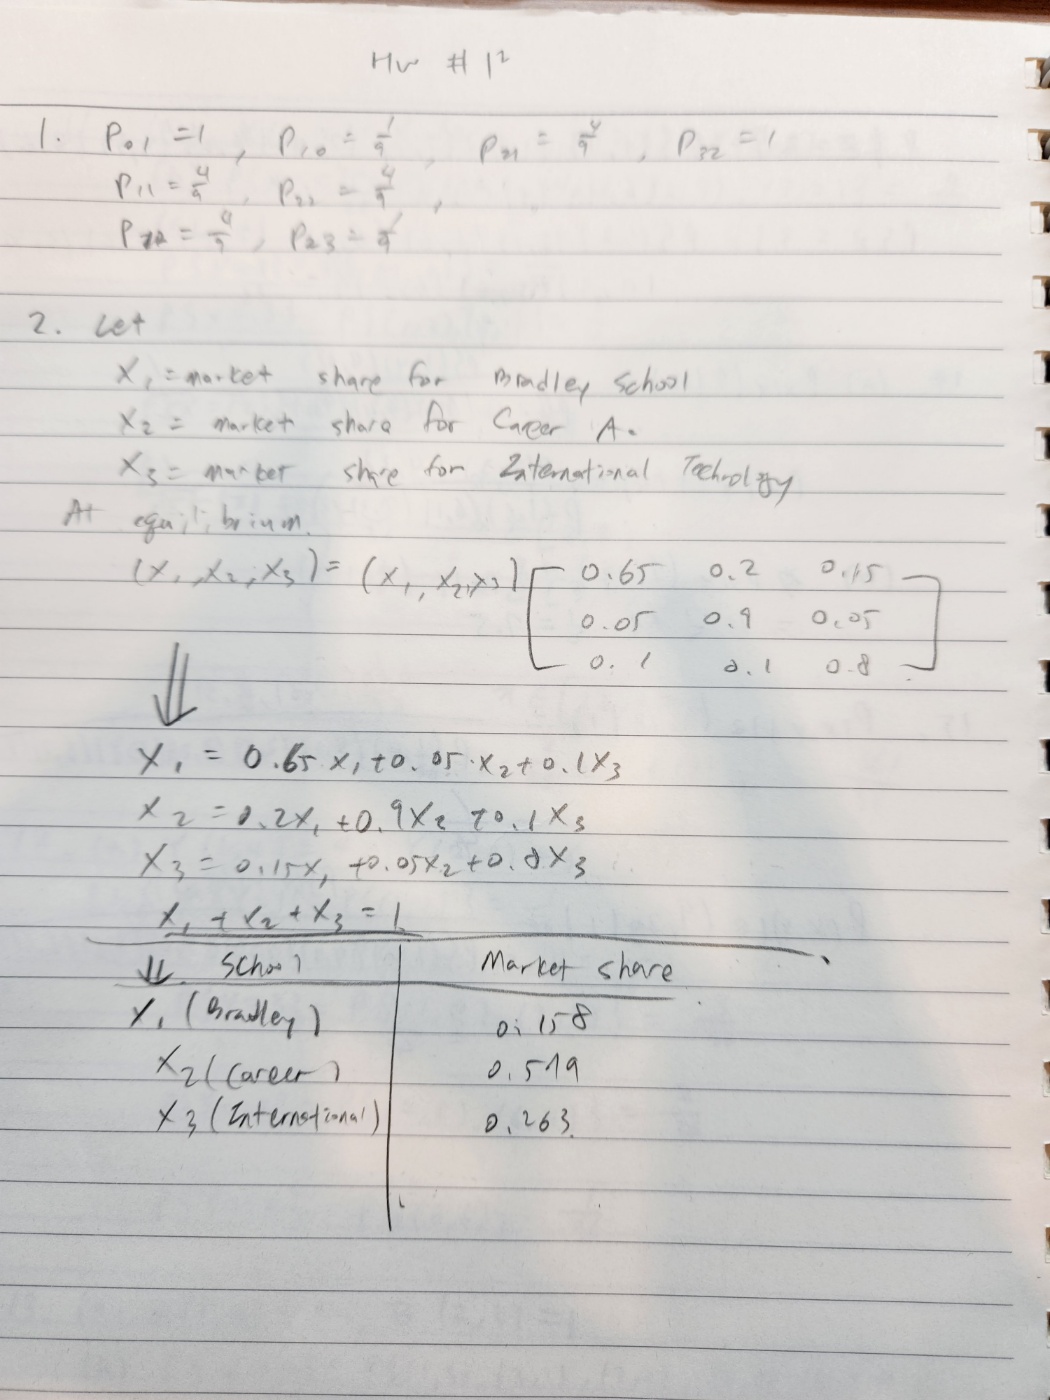 Hw # 12
1. P01 = 1, P10 = 1/9, P21 = 4/9, P32 = 1
P11 = 4/9, P22 = 4/9,
P12 = 4/9, P23 = 1/9
2. Let
X1 = market share for Bradley School
X2 = market share for Career A.
X3 = market share for International Technology
At equilibrium.
(X1, X2, X3) = (X1, X2, X3) [ 0.65 0.2 0.15
0.05 0.9 0.05
0.1 0.1 0.8 ]
⇓
X1 = 0.65 X1 + 0.05 · X2 + 0.1 X3
X2 = 0.2X1 + 0.9X2 + 0.1 X3
X3 = 0.15X1 + 0.05X2 + 0.8X3
X1 + X2 + X3 = 1
⇓ School Market share
X1 (Bradley) 0.158
X2 (Career) 0.579
X3 (International) 0.263